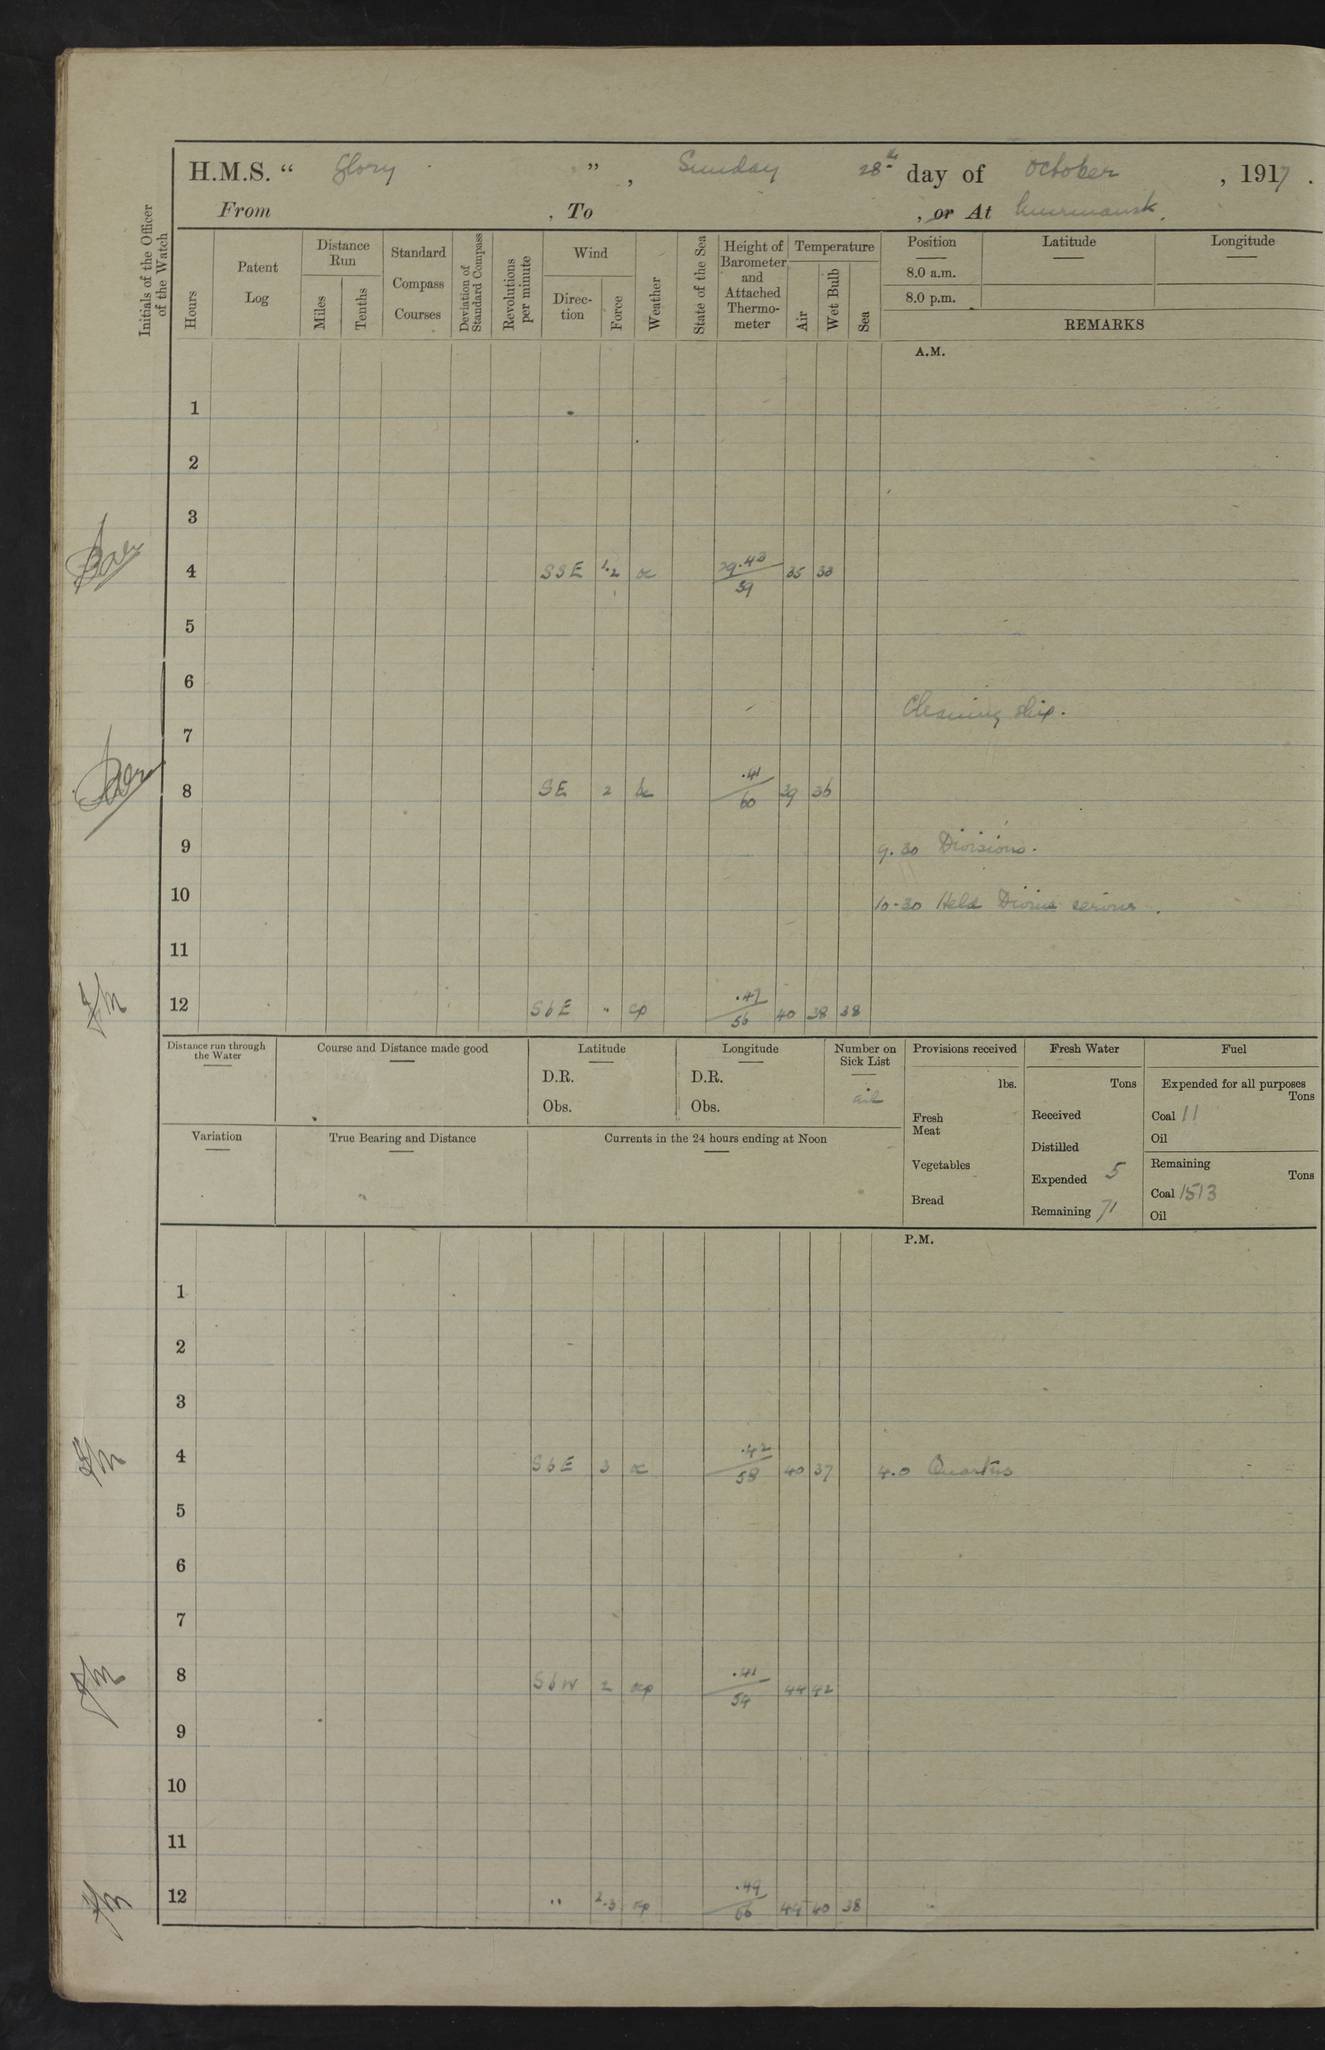 H.M.S. “ Glory ”, Sunday 28th day of October, 1917.
From , To , or At Murmansk.
Initials of the Officer of the Watch
Hours
Patent Log
Distance Run
Miles
Tenths
Standard Compass Courses
Deviation of Standard Compass
Revolutions per minute
Wind
Direction
Force
Weather
State of the Sea
Height of Barometer and Attached Thermometer
Temperature
Air
Wet Bulb
Sea
Position Latitude Longitude
8.0 a.m.
8.0 p.m.
REMARKS
A.M.
1
2
3
4 SSE 1.2 oc 29.43 59 35 33
5
6
Cleaning ship.
7
8 SE 2 bc .41 60 39 36
9 9.30 Divisions.
10 10-30 Held Divine service.
11
12 SbE " cp .47 56 40 38 38
Distance run through the Water
Course and Distance made good
Latitude
D.R.
Obs.
Longitude
D.R.
Obs.
Number on Sick List
nil
Variation
True Bearing and Distance
Currents in the 24 hours ending at Noon
Provisions received
lbs.
Fresh Meat
Vegetables
Bread
Fresh Water
Tons
Received
Distilled
Expended 5
Remaining 71
Fuel
Expended for all purposes
Tons
Coal 11
Oil
Remaining
Tons
Coal 1513
Oil
P.M.
1
2
3
4 SbE 3 oc .42 58 40 37 4.0 Quarters
5
6
7
8 SbW 2 ocp .41 54 44 42
9
10
11
12 " 2.3 cp .49 66 44 40 38